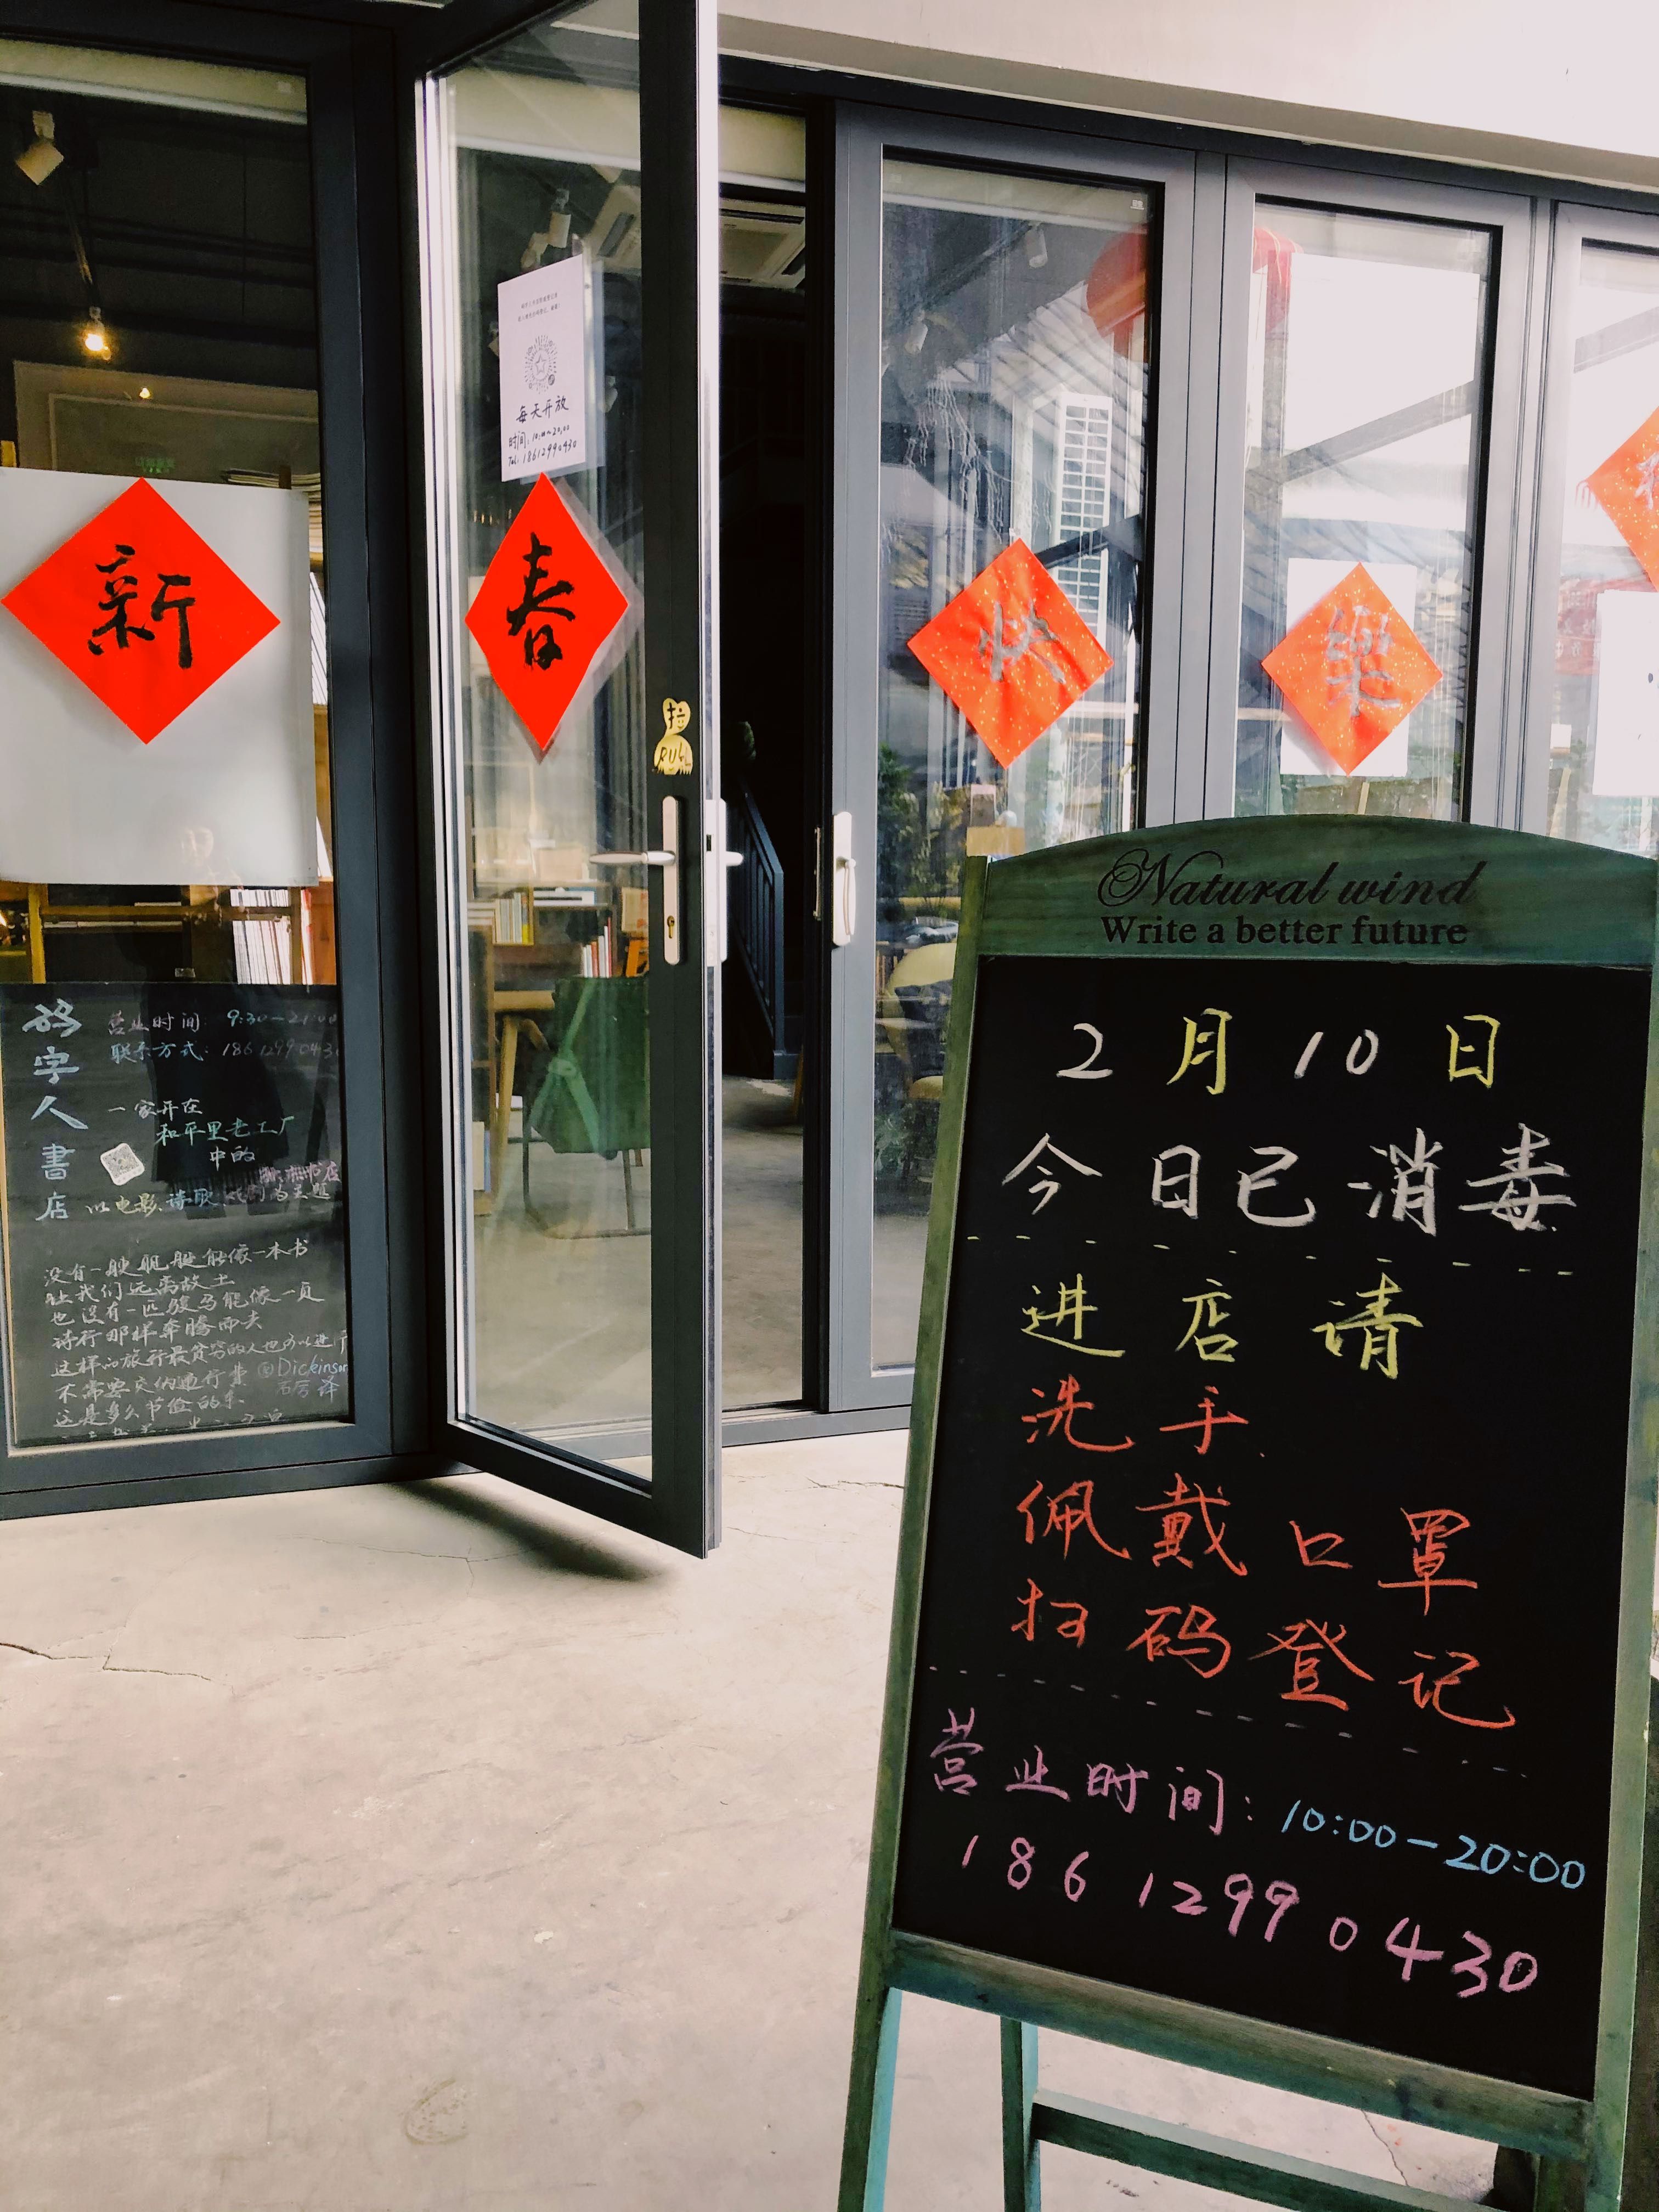 新
春
快
樂
每天开放
时间:10:00~20:00
Tel:18612990430
拉
PULL
码字人書店
营业时间: 9:30-21:00
联系方式: 18612990430
一家开在
和平里老工厂
中的
以电影、诗歌、戏剧为主题
没有一艘舰艇能像一本书
让我们远离故土
也没有一匹骏马能像一页
诗行那样奔腾而去
这样的旅行最贫穷的人也可以进行
不需要交纳通行费
@Dickinson
石厉 译
这是多么节俭的车
Natural wind
Write a better future
2月10日
今日已消毒
进店请
洗手
佩戴口罩
扫码登记
营业时间:10:00-20:00
186 1299 0430